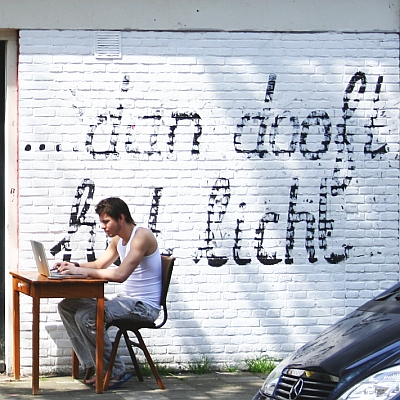 ....dan dooft
het licht...